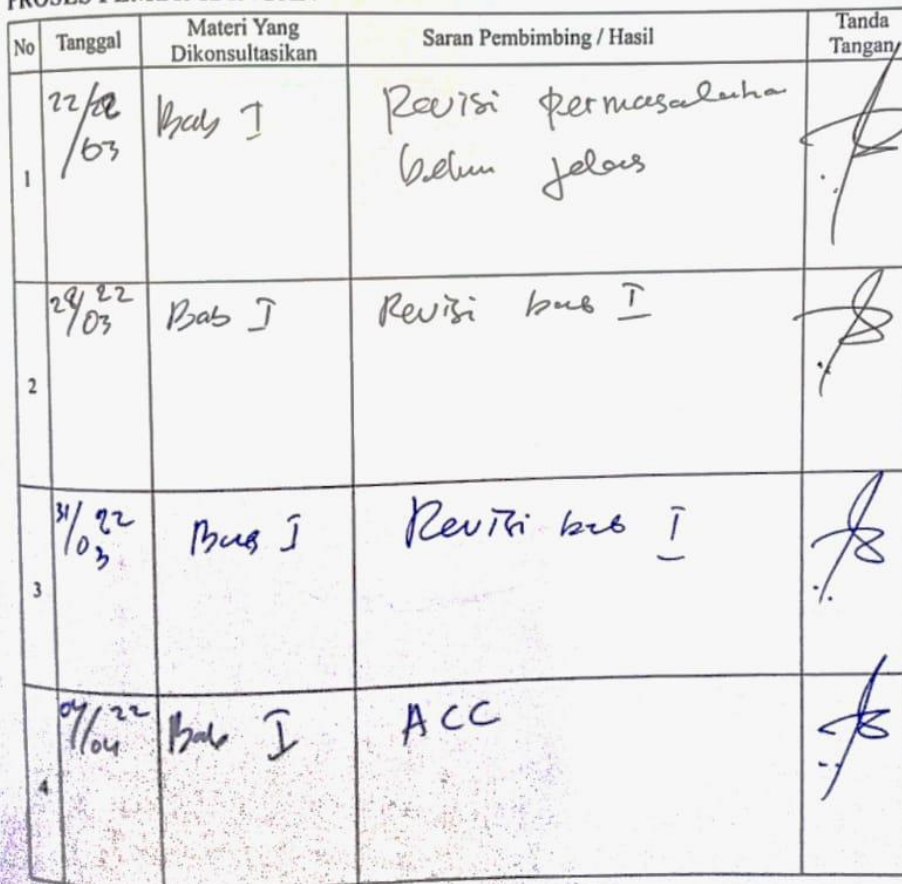 No Tanggal Materi Yang Dikonsultasikan Saran Pembimbing / Hasil Tanda Tangan
1 22/22/03 Bab I Revisi permasalahan
belum jelas
2 22/03 Bab I Revisi bab I
3 31/22/03 Bab I Revisi bab I
4 04/22/04 Bab I ACC